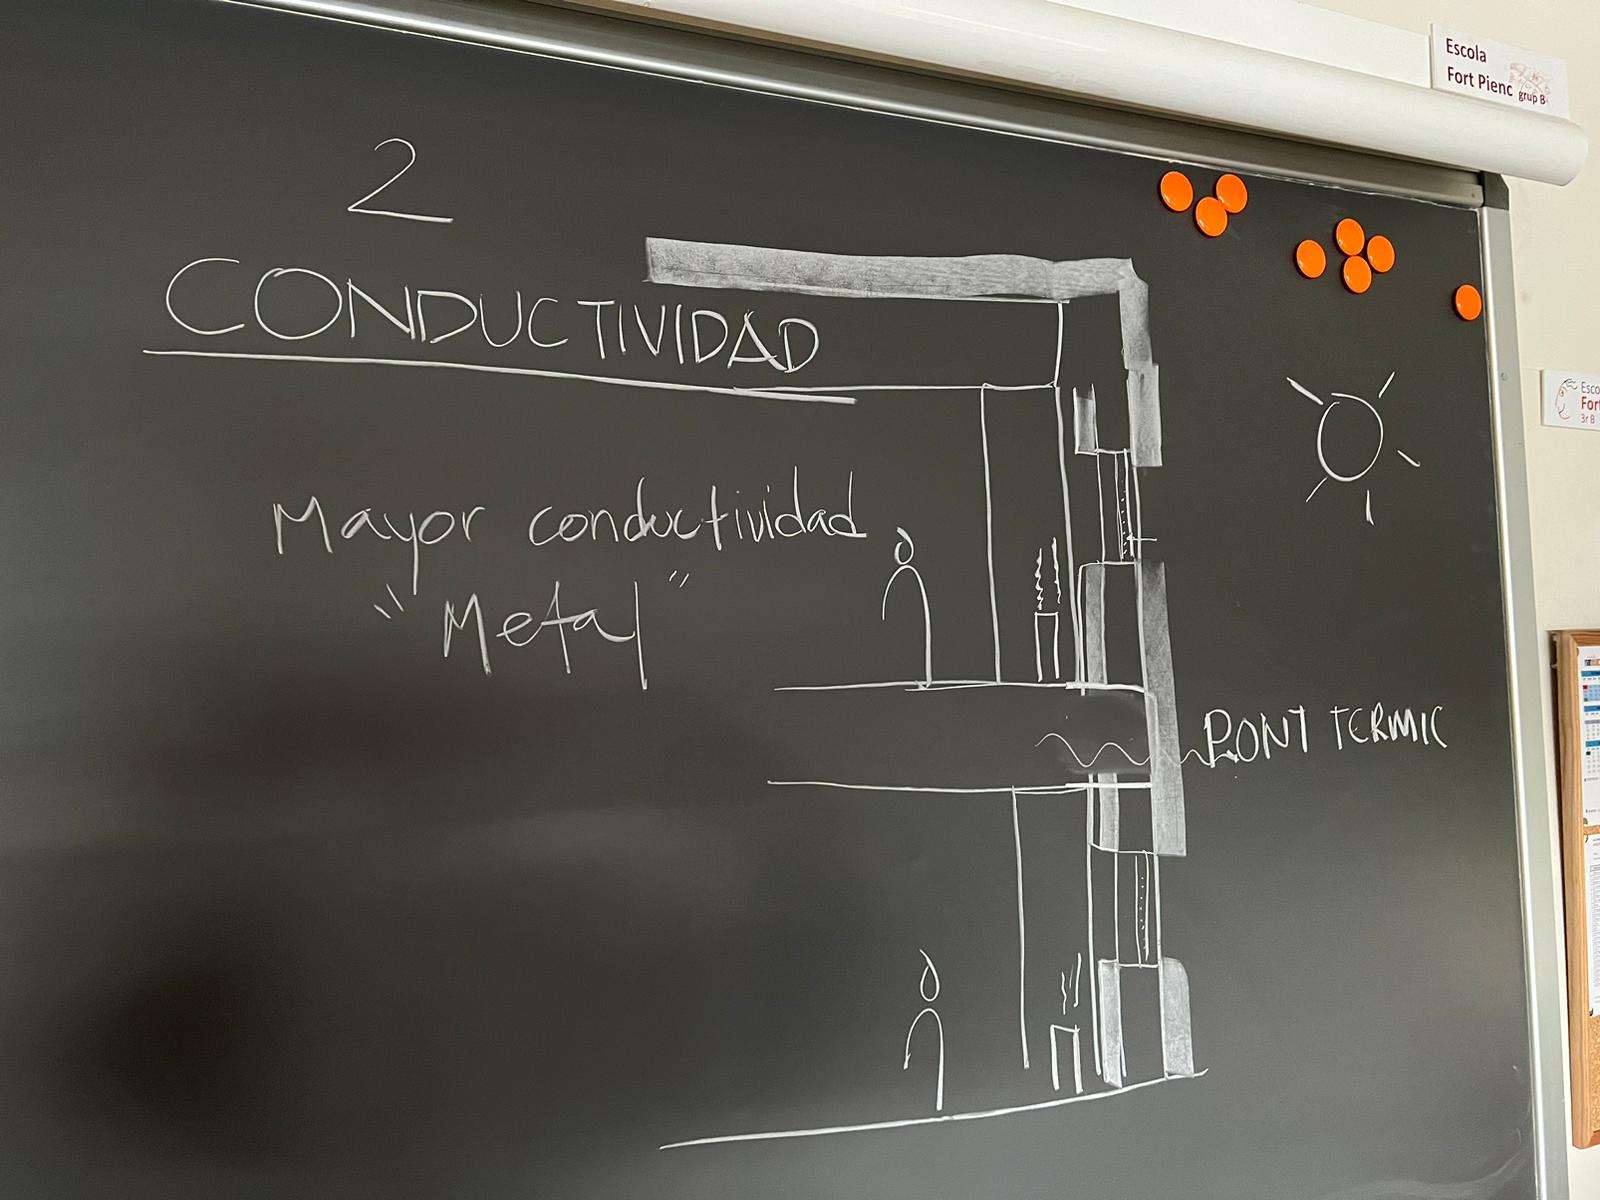 Escola
Fort Pienc grup B
2
CONDUCTIVIDAD
Esco
Fort
3r B
Mayor conductividad
"Metal"
PONT TERMIC